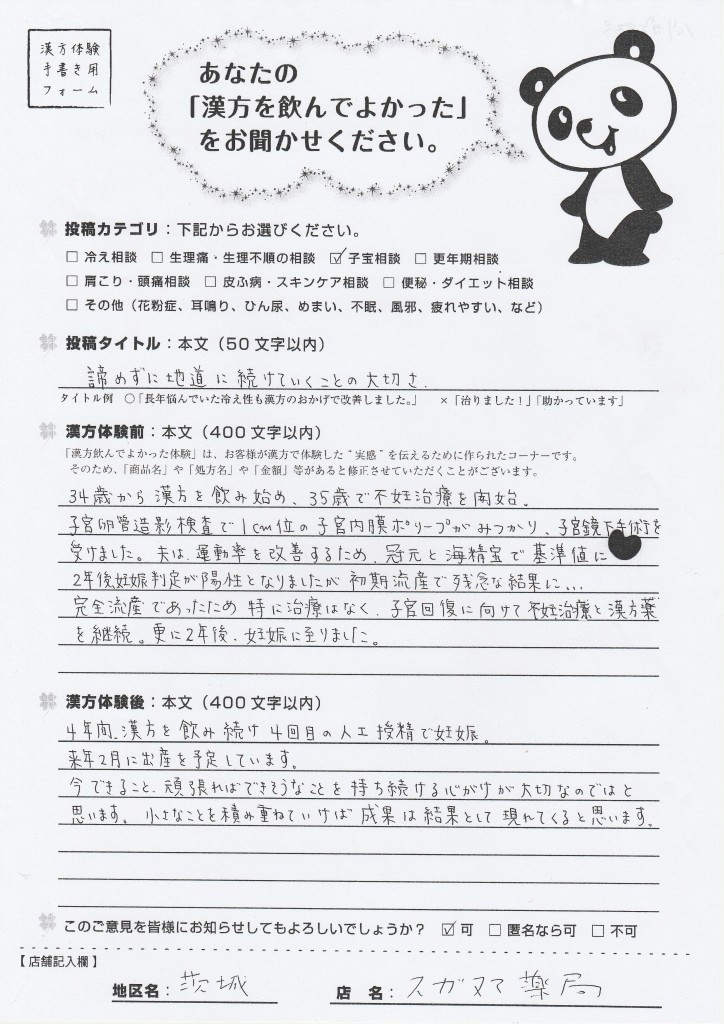 漢方体験
手書き用
フォーム
あなたの
「漢方を飲んでよかった」
をお聞かせください。
投稿カテゴリ：下記からお選びください。
□ 冷え相談 □ 生理痛・生理不順の相談 ☑ 子宝相談 □ 更年期相談
□ 肩こり・頭痛相談 □ 皮ふ病・スキンケア相談 □ 便秘・ダイエット相談
□ その他（花粉症、耳鳴り、ひん尿、めまい、不眠、風邪、疲れやすい、など）
投稿タイトル：本文（50文字以内）
諦めずに地道に続けていくことの大切さ.
タイトル例 ○「長年悩んでいた冷え性も漢方のおかげで改善しました。」 ×「治りました！」「助かっています」
漢方体験前：本文（400文字以内）
「漢方飲んでよかった体験」は、お客様が漢方で体験した“実感”を伝えるために作られたコーナーです。
そのため、「商品名」や「処方名」や「金額」等があると修正させていただくことがございます。
34歳から漢方を飲み始め、35歳で不妊治療を開始.
子宮卵管造影検査で1cm位の子宮内膜ポリープがみつかり、子宮鏡下手術を
受けました。夫は、運動率を改善するため、冠元と海精宝で基準値に
2年後妊娠判定が陽性となりましたが初期流産で残念な結果に...
完全流産であったため特に治療はなく、子宮回復に向けて不妊治療と漢方薬
を継続。更に2年後、妊娠に至りました。
漢方体験後：本文（400文字以内）
4年間、漢方を飲み続け4回目の人工授精で妊娠。
来年2月に出産を予定しています。
今できること、頑張ればできそうなことを持ち続ける心がけが大切なのではと
思います。小さなことを積み重ねていけば成果は結果として現れてくると思います。
このご意見を皆様にお知らせしてもよろしいでしょうか？ ☑ 可 □ 匿名なら可 □ 不可
【店舗記入欄】
地区名：茨城 店 名：スガヌマ薬局